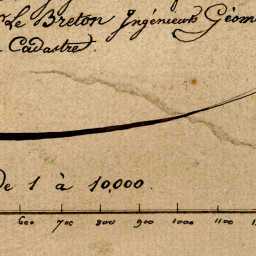 Le Breton Ingénieur Géom
Cadastre.
de 1 à 10,000.
600 700 800 900 1000 1100